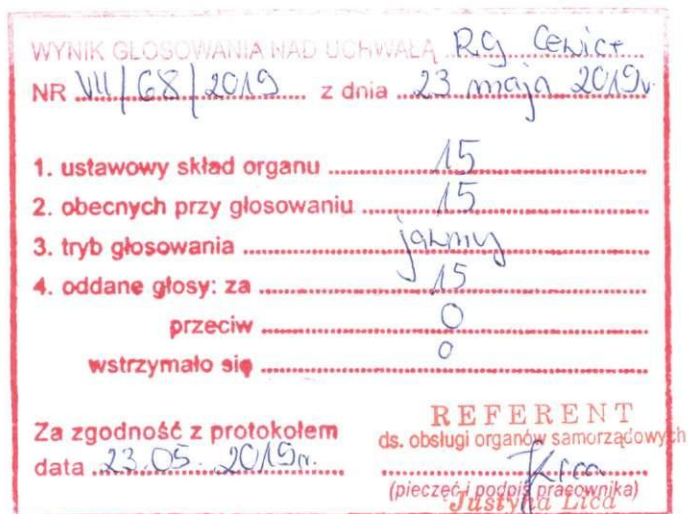 WYNIK GŁOSOWANIA NAD UCHWAŁĄ RG Cewice
NR VII/68/2019 z dnia 23 maja 2019r.
1. ustawowy skład organu 15
2. obecnych przy głosowaniu 15
3. tryb głosowania jawny
4. oddane głosy: za 15
przeciw 0
wstrzymało się 0
REFERENT
Za zgodność z protokołem ds. obsługi organów samorządowych
data 23.05.2019r.
(pieczęć i podpis pracownika)
Justyna Lica